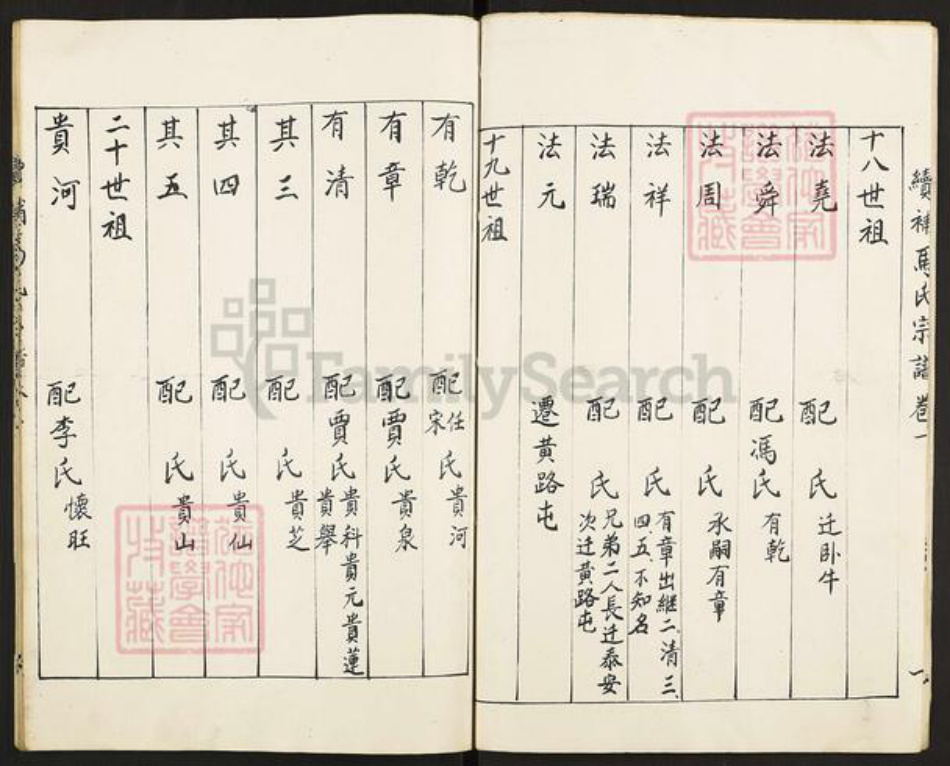 續補馬氏宗譜卷一
十八世祖
法堯 配 氏 迁卧牛
法舜 配馮氏 有乾
法周 配 氏 承嗣有章
法祥 配 氏 有章出継二、清三、四、五、不知名
法瑞 配 氏 兄弟二人長迁泰安次迁黄路屯
法元 遷黄路屯
十九世祖
有乾 配任宋氏 貴河
有章 配賈氏 貴泉
有清 配賈氏 貴科貴元貴蓮貴舉
其三 配 氏 貴芝
其四 配 氏 貴仙
其五 配 氏 貴山
二十世祖
貴河 配李氏 懷旺
FamilySearch